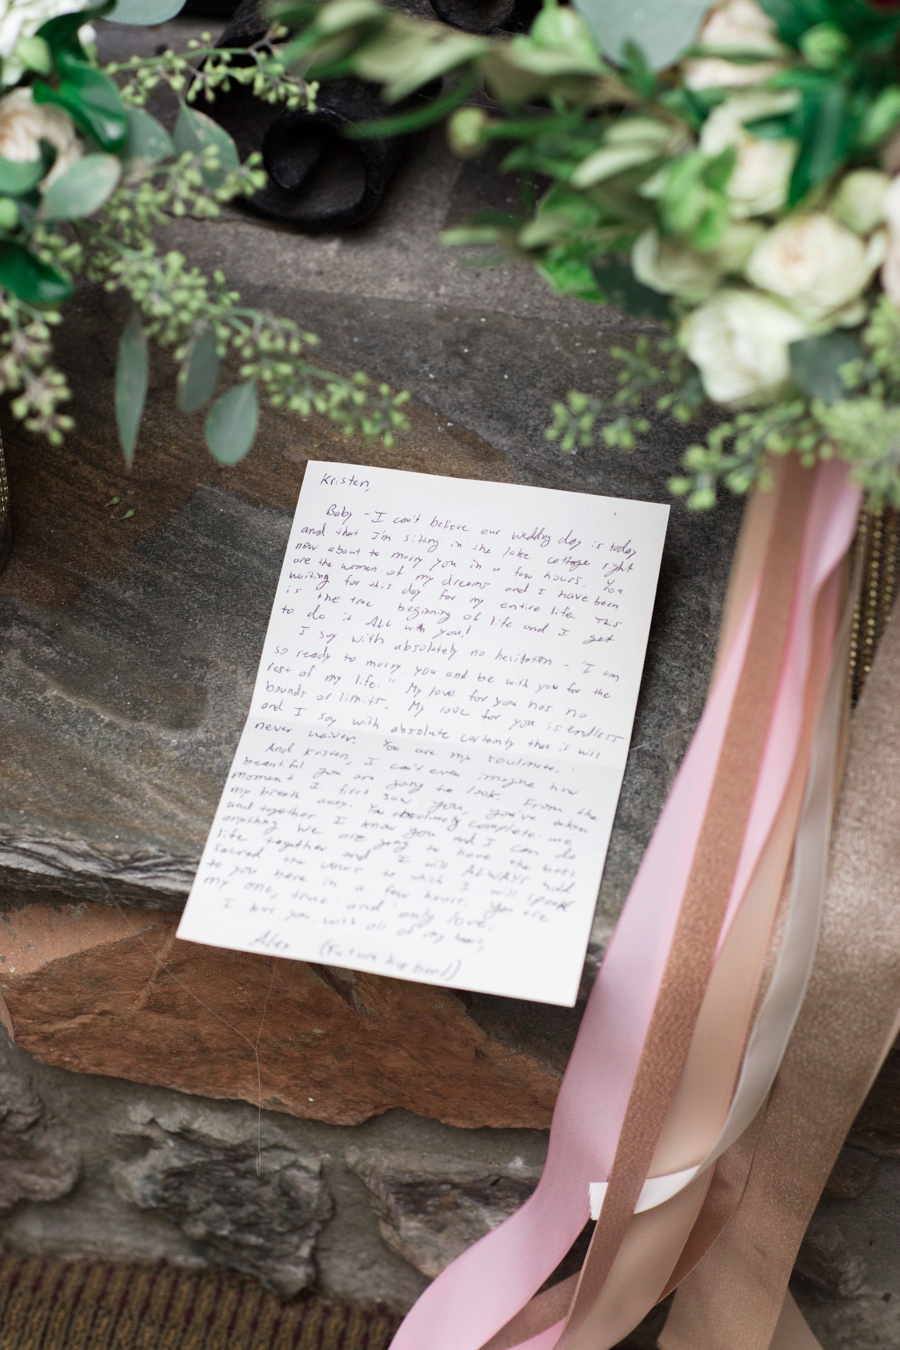 Kristen,
Baby - I can't believe our wedding day is today
and that I'm sitting in the lake cottage right
now about to marry you in a few hours. You
are the woman of my dreams and I have been
waiting for this day for my entire life. This
is the true beginning of life and I get
to do it ALL with you!
I say with absolutely no hesitation - "I am
so ready to marry you and be with you for the
rest of my life." My love for you has no
bounds or limits. My love for you is endless
and I say with absolute certainty that it will
never waiver. You are my soulmate.
And Kristen, I can't even imagine how
beautiful you are going to look. From the
moment I first saw you, you've taken
my breath away. You absolutely complete me
and together I know you and I can do
anything. We are going to have the best
life together and I will ALWAYS hold
sacred the vows to which I will speak
to you here in a few hours. You are
my one, true and only love.
I love you with all of my heart,
Alex (Future husband)